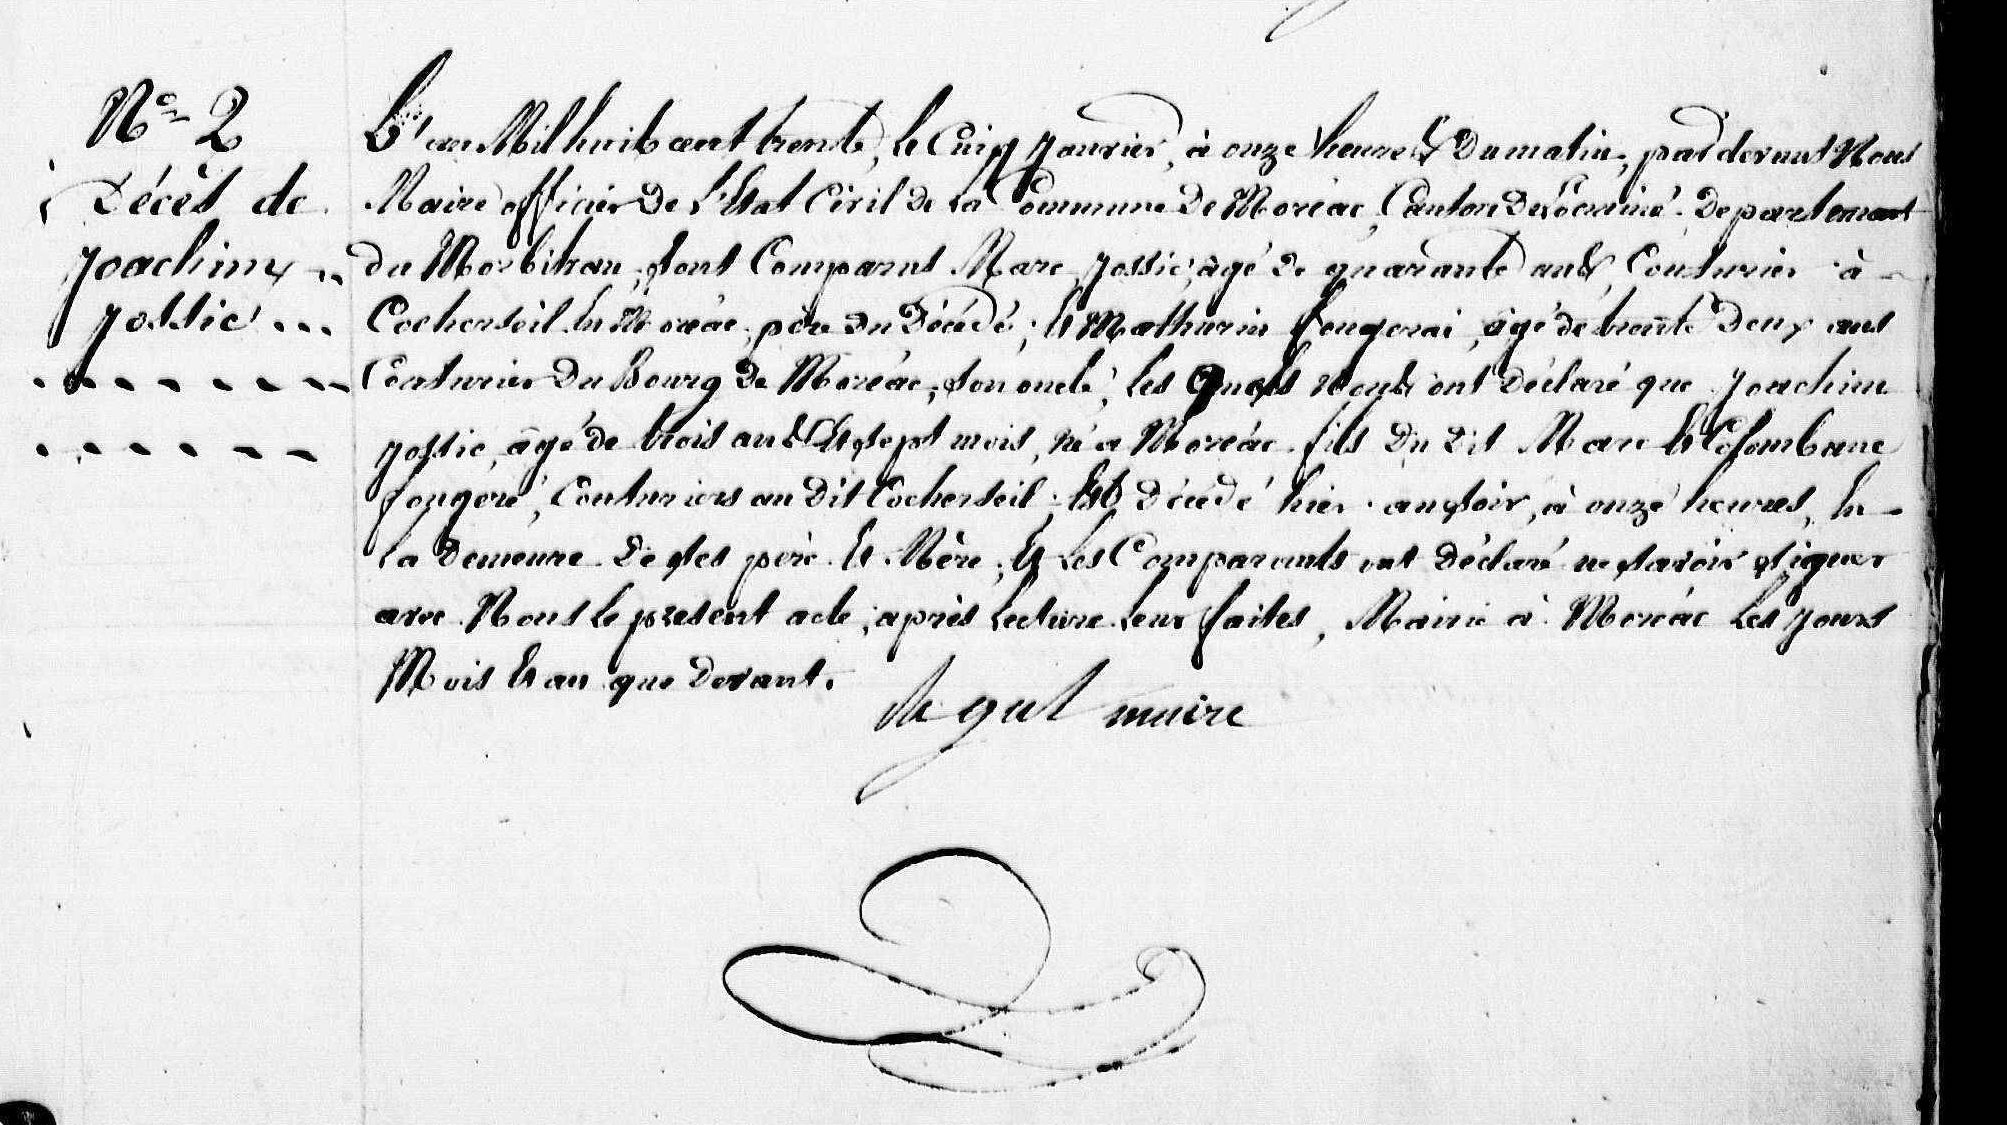 N° 2
Décès de
joachim
jossic
L'an Mil huit cent trente, le Cinq janvier, à onze heures Du matin, par devant Nous
Maire officier De L'Etat Civil de La Commune De Moréac, Canton De Locminé. Departement
du Morbihan, sont Comparus Marc jossic, agé De quarante ans, Couturier à
Cocherseil En Moréac, père Du Décédé, Et Mathurin fougerai, âgé de trente Deux ans
Couturier Du Bourg De Moréac, son oncle, Les Quels nous ont Déclaré que joachim
jossic, âgé de trois ans Et sept mois, né a Moréac fils Du Dit Marc Et Colombane
fougeré, Couturiers au Dit Cocherseil, Est Décédé hier au soir, à onze heures, En
La Demeure De ses père Et Mère; Et Les Comparants ont Déclaré ne savoir signer
avec Nous le présent acte, après Lecture Leur faites, Mairie à Moréac Les jours
Mois Et an que Devant.
maire